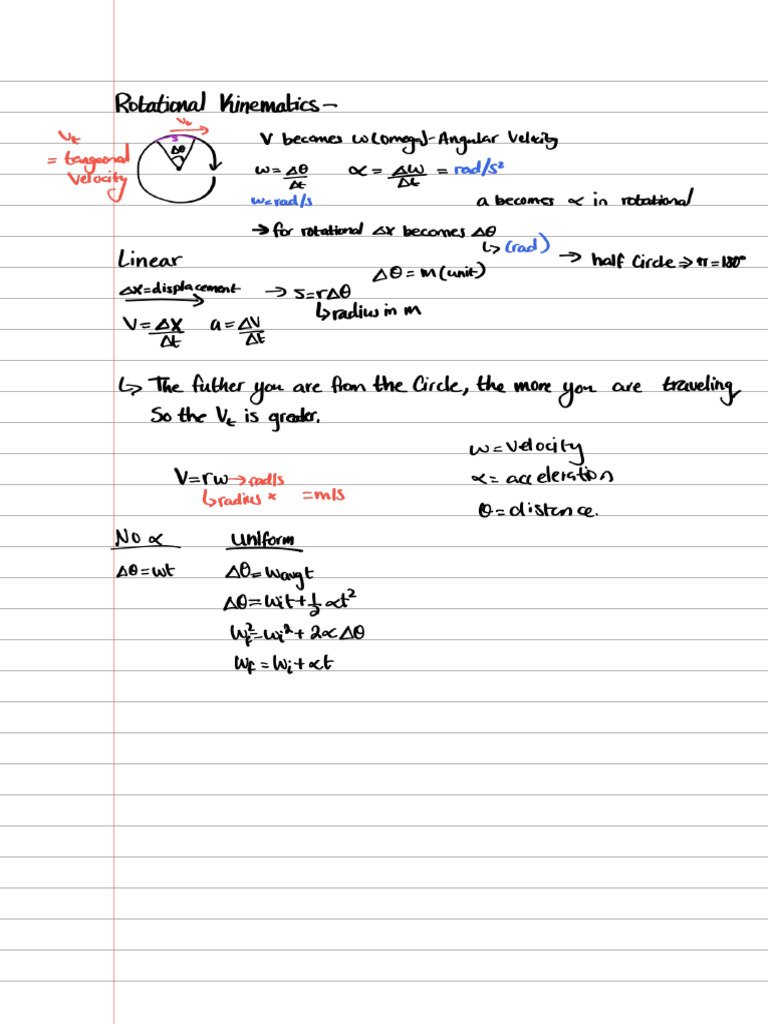 Rotational Kinematics -
Vt
Vt
= tangeonal
Velocity
S
Δθ
V becomes ω(omega) - Angular Velocity
ω = Δθ/Δt α = Δω/Δt = rad/s²
ω = rad/s
a becomes α in rotational
→ for rotational Δx becomes Δθ
↳ (rad)
→ half Circle ⇒ π = 180°
Linear
Δθ = m (unit)
Δx = displacement → s = rΔθ
↳ radius in m
V = Δx/Δt a = Δv/Δt
↳ The futher you are from the Circle, the more you are traveling
So the Vt is greater.
ω = velocity
V = rω → rad/s
↳ radius * = m/s
α = acceleration
θ = distance.
No α Uniform
Δθ = ωt Δθ = ωavgt
Δθ = ωit + 1/2 αt²
ωf² = ωi² + 2αΔθ
ωf = ωi + αt